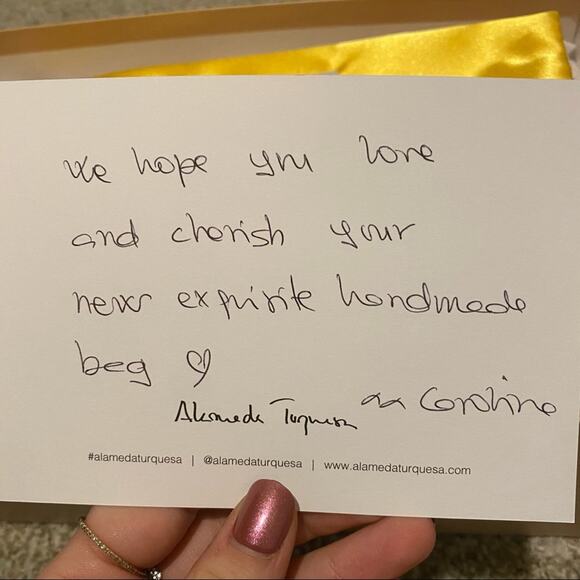 We hope you love
and cherish your
new exquisite handmade
bag ♡
Alameda Turquesa xx Caroline
#alamedaturquesa | @alamedaturquesa | www.alamedaturquesa.com